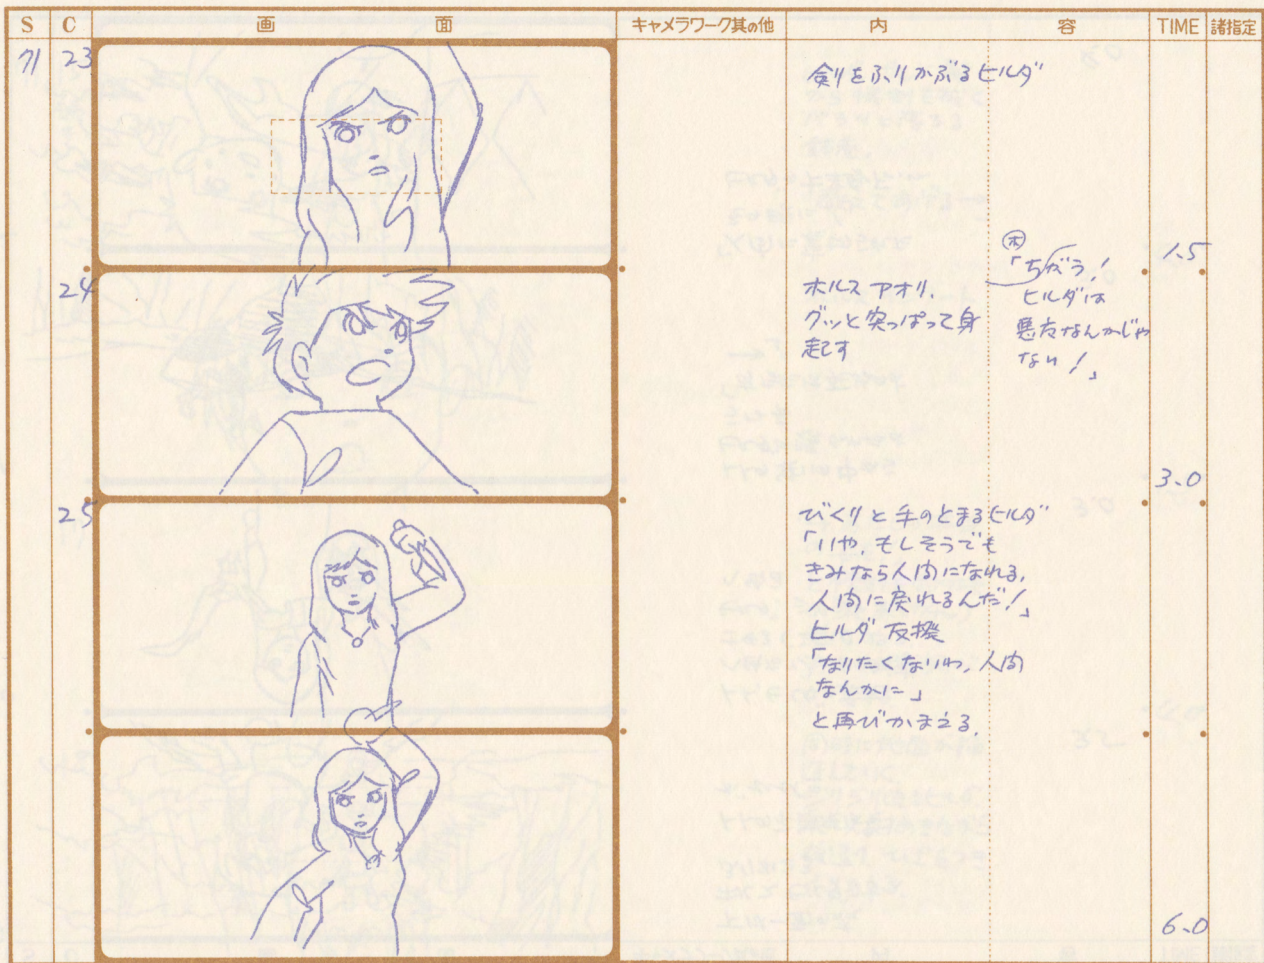 S C 画面 キャメラワーク其の他 内容 TIME 諸指定
71 23
剣をふりかぶるヒルダ
1.5
24
ホルス アオリ、
グッと突っぱって身
起す
ホ
「ちがう！
ヒルダは
悪魔なんかじゃ
ない！」
3.0
25
びくりと手のとまるヒルダ
「いや、もしそうでも
きみなら人間になれる、
人間に戻れるんだ！」
ヒルダ反撥
「なりたくないわ、人間
なんかに」
と再びかまえる。
6.0